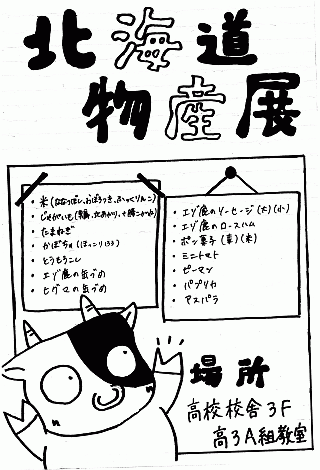 北海道
物産展
・米(ななつぼし、おぼろづき、ふっくりんこ)
・じゃがいも(
・たまねぎ
・かぼちゃ(ほっこり133)
・とうもろこし
・エゾ鹿の缶づめ
・ヒグマの缶づめ
・エゾ鹿のソーセージ(大)(小)
・エゾ鹿のロースハム
・ポン菓子(麦)(米)
・ミニトマト
・ピーマン
・パプリカ
・アスパラ
場所
高校校舎3F
高3A組教室